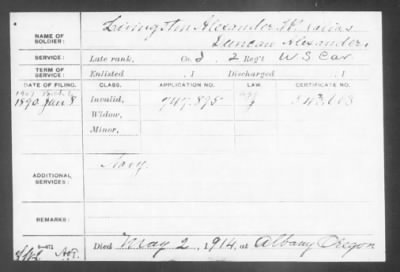 NAME OF SOLDIER: Livingston Alexander W. alias
Duncan Alexander,
SERVICE: Late rank, Co. I, 2 Reg't U S Cav
TERM OF SERVICE: Enlisted , 1 Discharged , 1
DATE OF FILING. CLASS. APPLICATION NO. LAW. CERTIFICATE NO.
1890 Jan 8 Invalid, 747.895
Widow,
Minor,
ADDITIONAL SERVICES: Navy.
REMARKS:
Died May 2, 1914, at Albany Oregon